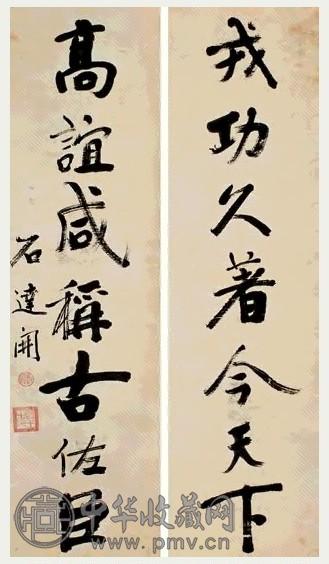 戎功久著今天下
高誼咸稱古佐臣
石達開
中华收藏网
www.pmv.cn